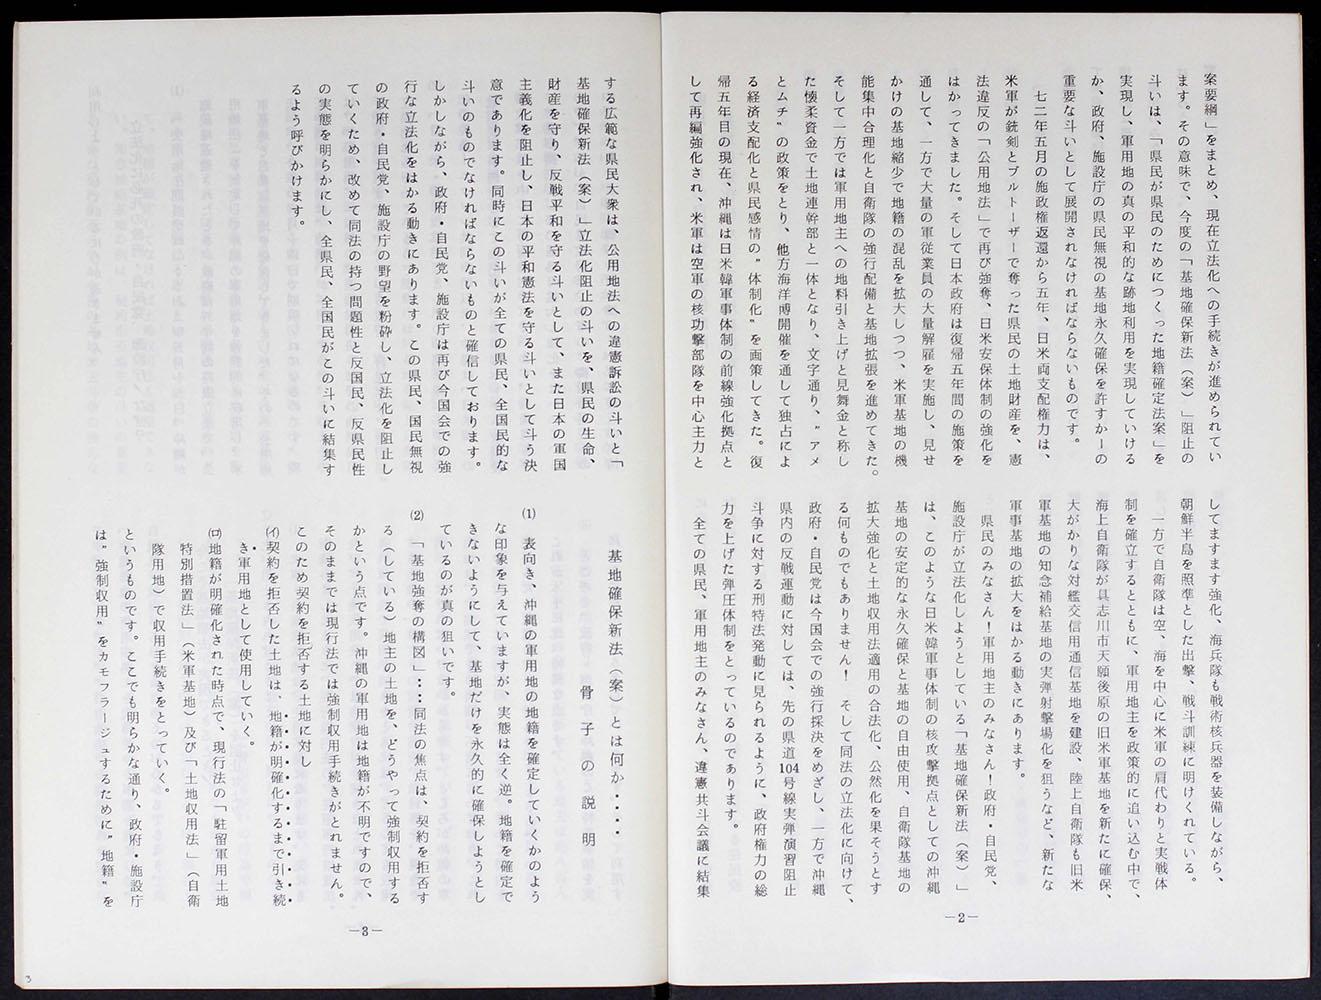 案要綱」をまとめ、現在立法化への手続きが進められてい
ます。その意味で、今度の「基地確保新法(案)」阻止の
斗いは、「県民が県民のためにつくった地籍確定法案」を
実現し、軍用地の真の平和的な跡地利用を実現していける
か、政府、施設庁の県民無視の基地永久確保を許すかーの
重要な斗いとして展開されなければならないものです。
七二年五月の施政権返還から五年、日米両支配権力は、
米軍が銃剣とブルトーザーで奪った県民の土地財産を、憲
法違反の「公用地法」で再び強奪、日米安保体制の強化を
はかってきました。そして日本政府は復帰五年間の施策を
通して、一方で大量の軍従業員の大量解雇を実施し、見せ
かけの基地縮少で地籍の混乱を拡大しつつ、米軍基地の機
能集中合理化と自衛隊の強行配備と基地拡張を進めてきた。
そして一方では軍用地主への地料引き上げと見舞金と称し
た懐柔資金で土地連幹部と一体となり、文字通り、〝アメ
とムチ〟の政策をとり、他方海洋博開催を通して独占によ
る経済支配化と県民感情の〝体制化〟を画策してきた。復
帰五年目の現在、沖縄は日米韓軍事体制の前線強化拠点と
して再編強化され、米軍は空軍の核功撃部隊を中心主力と
してますます強化、海兵隊も戦術核兵器を装備しながら、
朝鮮半島を照準とした出撃、戦斗訓練に明けくれている。
一方で自衛隊は空、海を中心に米軍の肩代わりと実戦体
制を確立するとともに、軍用地主を政策的に追い込む中で、
海上自衛隊が具志川市天願後原の旧米軍基地を新たに確保、
大がかりな対艦交信用通信基地を建設、陸上自衛隊も旧米
軍基地の知念補給基地の実弾射撃場化を狙うなど、新たな
軍事基地の拡大をはかる動きにあります。
県民のみなさん!軍用地主のみなさん!政府・自民党、
施設庁が立法化しようとしている「基地確保新法(案)」
は、このような日米韓軍事体制の核攻撃拠点としての沖縄
基地の安定的な永久確保と基地の自由使用、自衛隊基地の
拡大強化と土地収用法適用の合法化、公然化を果そうとす
る何ものでもありません! そして同法の立法化に向けて、
政府・自民党は今国会での強行採決をめざし、一方で沖縄
県内の反戦運動に対しては、先の県道104号線実弾演習阻止
斗争に対する刑特法発動に見られるように、政府権力の総
力を上げた弾圧体制をとっているのであります。
全ての県民、軍用地主のみなさん、違憲共斗会議に結集
—2—
する広範な県民大衆は、公用地法への違憲訴訟の斗いと「
基地確保新法(案)」立法化阻止の斗いを、県民の生命、
財産を守り、反戦平和を守る斗いとして、また日本の軍国
主義化を阻止し、日本の平和憲法を守る斗いとして斗う決
意であります。同時にこの斗いが全ての県民、全国民的な
斗いのものでなければならないものと確信しております。
しかしながら、政府・自民党、施設庁は再び今国会での強
行な立法化をはかる動きにあります。この県民、国民無視
の政府・自民党、施設庁の野望を粉砕し、立法化を阻止し
ていくため、改めて同法の持つ問題性と反国民、反県民性
の実態を明らかにし、全県民、全国民がこの斗いに結集す
るよう呼びかけます。
基地確保新法(案)とは何か・・・・
骨子の説明
(1) 表向き、沖縄の軍用地の地籍を確定していくかのよう
な印象を与えていますが、実態は全く逆。地籍を確定で
きないようにして、基地だけを永久的に確保しようとし
ているのが真の狙いです。
(2) 「基地強奪の構図」・・・・同法の焦点は、契約を拒否す
る(している)地主の土地を、どうやって強制収用する
かという点です。沖縄の軍用地は地籍が不明ですので、
そのままでは現行法では強制収用手続きがとれません。
このため契約を拒否する土地に対し
(イ)契約を拒否した土地は、地籍が明確化するまで引き続
き軍用地として使用していく。
(ロ)地籍が明確化された時点で、現行法の「駐留軍用土地
特別措置法」(米軍基地)及び「土地収用法」(自衛
隊用地)で収用手続きをとっていく。
というものです。ここでも明らかな通り、政府・施設庁
は〝強制収用〟をカモフラージュするために〝地籍〟を
—3—
3